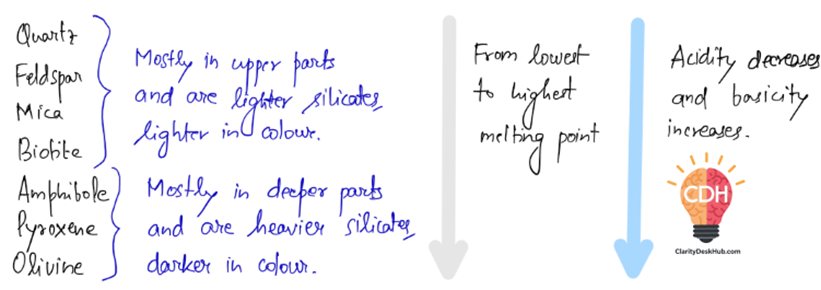 Quartz
Feldspar
Mica
Biotite
Mostly in upper parts
and are lighter silicates,
lighter in colour.
Amphibole
Pyroxene
Olivine
Mostly in deeper parts
and are heavier silicates,
darker in colour.
From lowest
to highest
melting point
Acidity decreases
and basicity
increases.
CDH
ClarityDeskHub.com